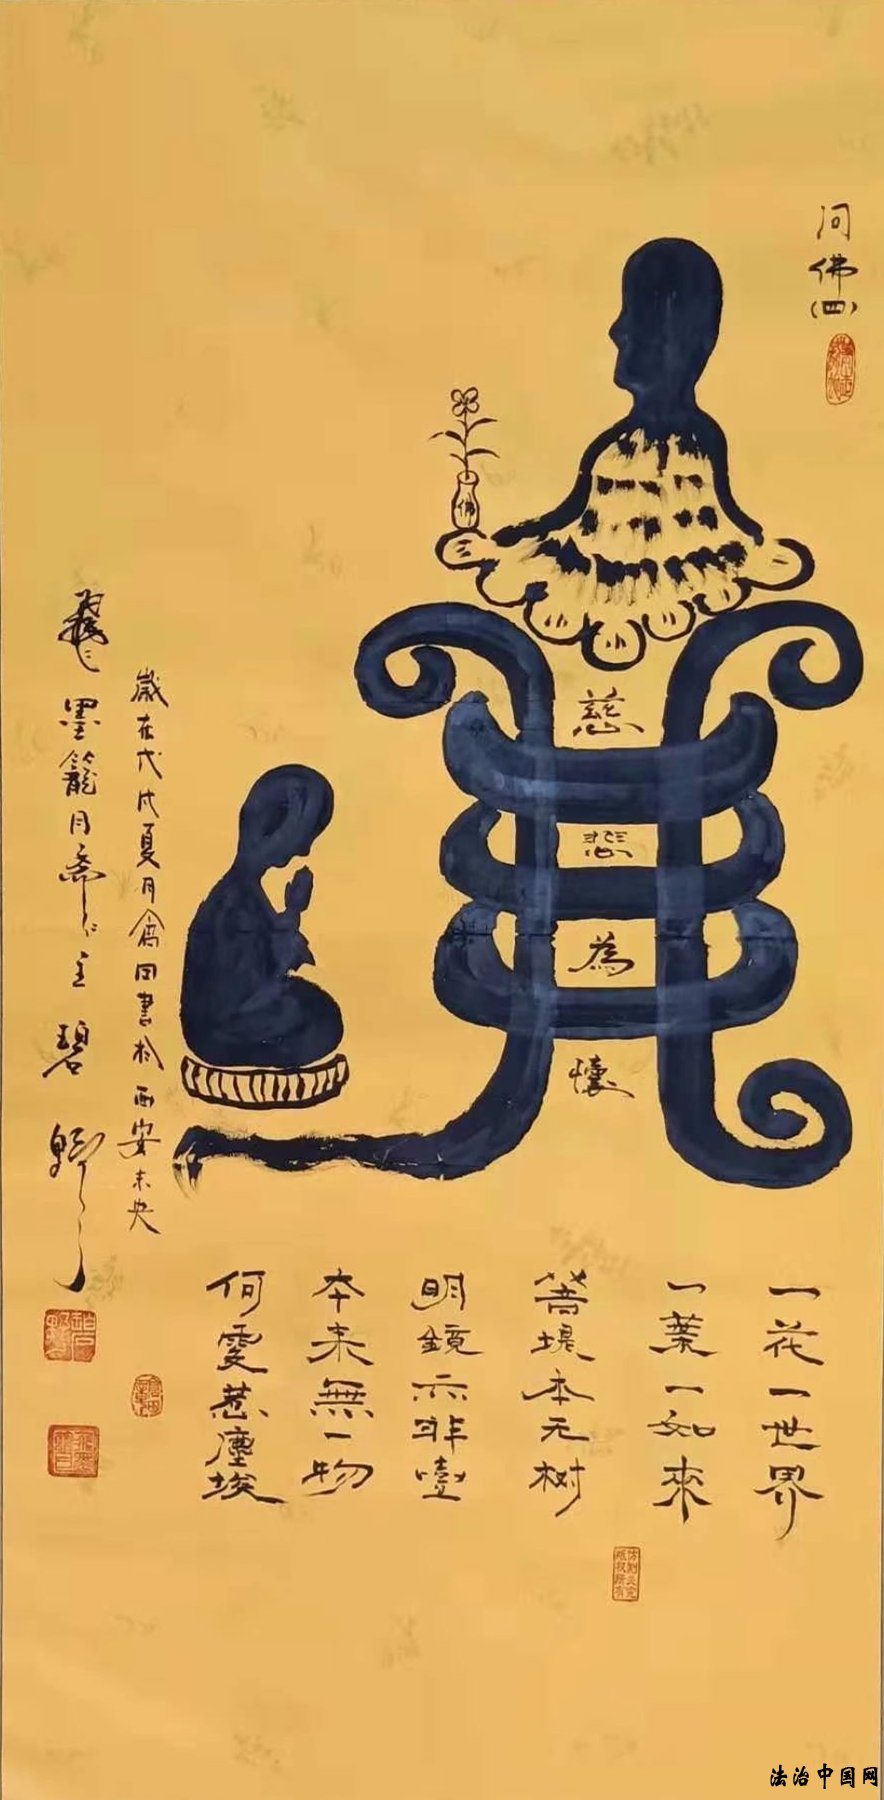 问佛(四)
佛
慈悲為懷
一花一世界
一葉一如來
菩堤本无树
明鏡亦非臺
本来無一物
何處惹塵埃
歲在戊戌夏月田書於西安未央
墨籠月齋主碧卿
版权所有
法治中国网